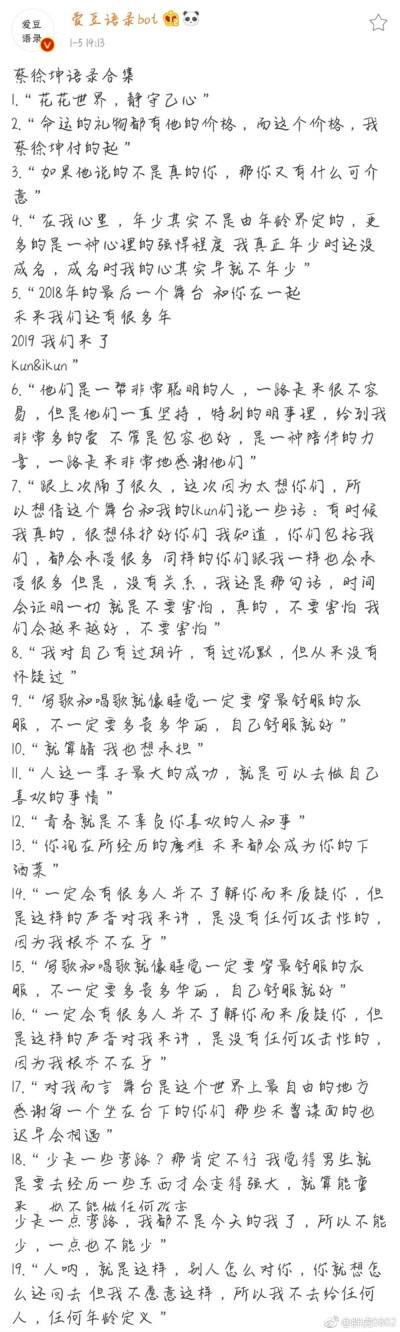 爱豆
语录
爱豆语录bot
1-5 19:13
蔡徐坤语录合集
1.“花花世界，静守己心”
2.“命运的礼物都有他的价格，而这个价格，我
蔡徐坤付的起”
3.“如果他说的不是真的你，那你又有什么可介
意”
4.“在我心里，年少其实不是由年龄界定的，更
多的是一种心理的强悍程度 我真正年少时还没
成名，成名时我的心其实早就不年少”
5.“2018年的最后一个舞台 和你在一起
未来我们还有很多年
2019 我们来了
Kun&iKun”
6.“他们是一帮非常聪明的人，一路走来很不容
易，但是他们一直坚持，特别的明事理，给到我
非常多的爱 不管是包容也好，是一种陪伴的力
量，一路走来非常地感谢他们”
7.“跟上次隔了很久，这次因为太想你们，所
以想借这个舞台和我的IKun们说一些话：有时候
我真的，很想保护好你们 我知道，你们包括我
们，都会承受很多 同样的你们跟我一样也会承
受很多 但是，没有关系，我还是那句话，时间
会证明一切 就是不要害怕，真的，不要害怕 我
们会越来越好，不要害怕”
8.“我对自己有过期许，有过沉默，但从来没有
怀疑过”
9.“写歌和唱歌就像睡觉一定要穿最舒服的衣
服，不一定要多贵多华丽，自己舒服就好”
10.“就算错 我也想承担”
11.“人这一辈子最大的成功，就是可以去做自己
喜欢的事情”
12.“青春就是不辜负你喜欢的人和事”
13.“你现在所经历的磨难 未来都会成为你的下
酒菜”
14.“一定会有很多人并不了解你而来质疑你，但
是这样的声音对我来讲，是没有任何攻击性的，
因为我根本不在乎”
15.“写歌和唱歌就像睡觉一定要穿最舒服的衣
服，不一定要多贵多华丽，自己舒服就好”
16.“一定会有很多人并不了解你而来质疑你，但
是这样的声音对我来讲，是没有任何攻击性的，
因为我根本不在乎”
17.“对我而言 舞台是这个世界上最自由的地方
感谢每一个坐在台下的你们 那些未曾谋面的也
迟早会相遇”
18.“少走一些弯路？那肯定不行 我觉得男生就
是要去经历一些东西才会变得强大，就算能重
来，也不能做任何改变
少走一点弯路，我都不是今天的我了，所以不能
少，一点也不能少”
19.“人呐，就是这样，别人怎么对你，你就想怎
么还回去 但我不愿意这样，所以我不去给任何
人，任何年龄定义”